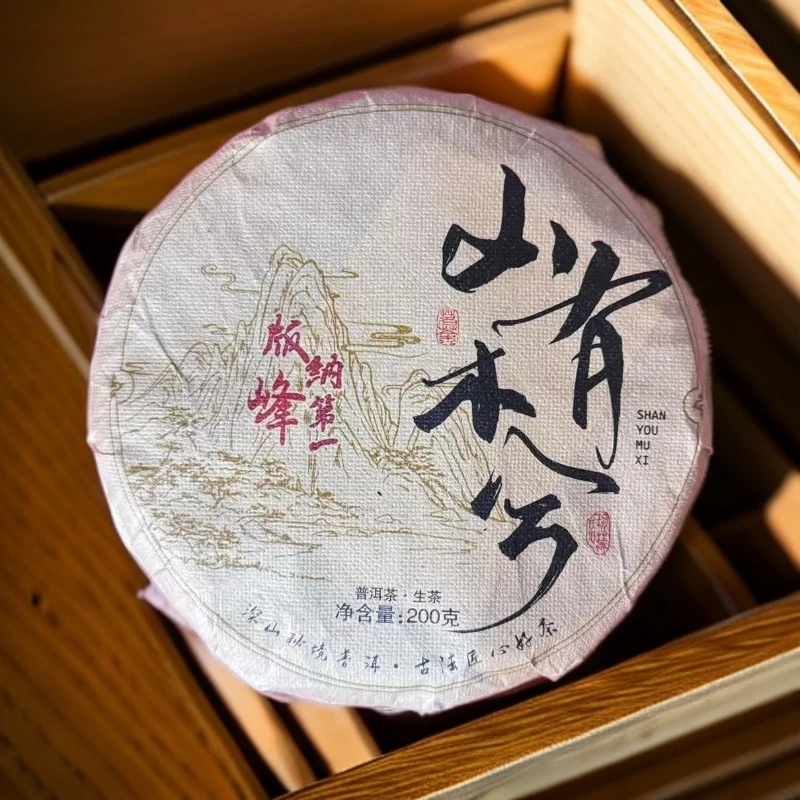 山有木兮
SHAN
YOU
MU
XI
版纳第一峰
普洱茶·生茶
净含量:200克
深山秘境普洱·古法匠心好茶